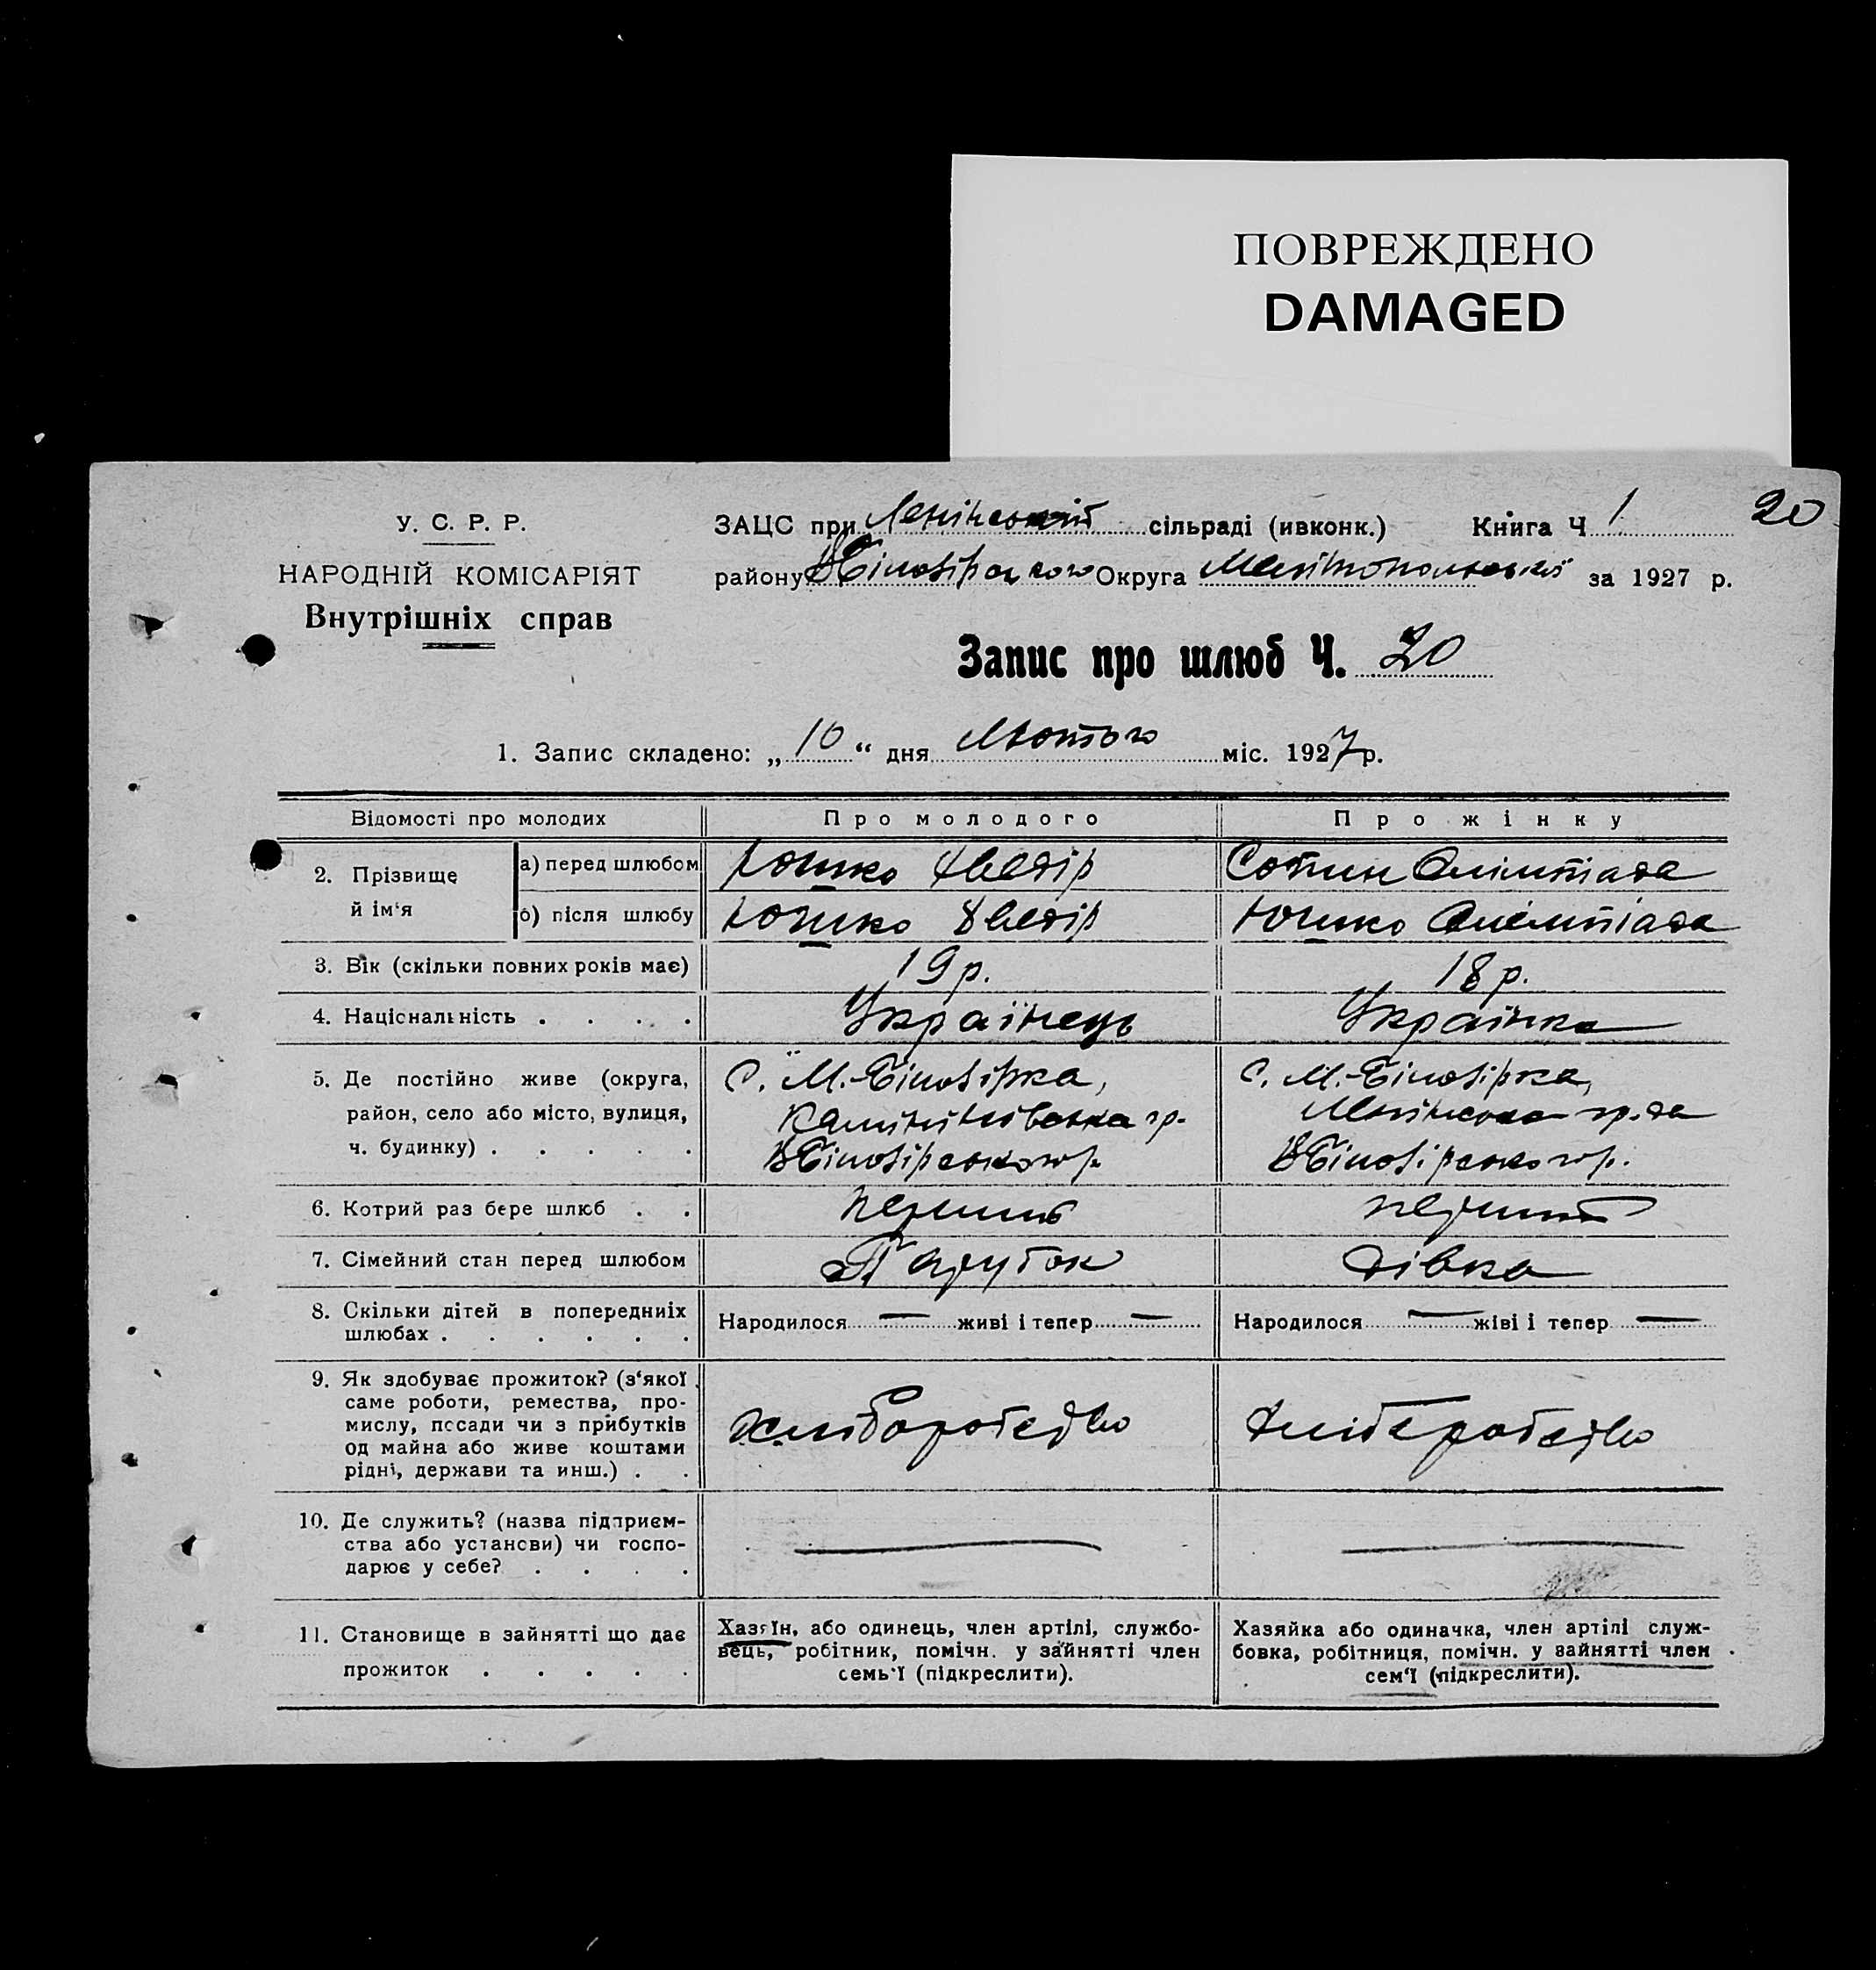 ПОВРЕЖДЕНО
DAMAGED
У. С. Р. Р.
НАРОДНІЙ КОМІСАРІЯТ
Внутрішніх справ
ЗАЦС при Ленінській сільраді (ивконк.) Книга Ч 1 20
району В Білозірського Округа Мелітопольської за 1927 р.
Запис про шлюб Ч. 20
1. Запис складено: „ 10 “ дня Лютого міс. 1927 р.
Відомості про молодих Про молодого Про жінку
2. Прізвище й ім‘я
а) перед шлюбом Юшко Хведір Сотин Олімпіада
б) після шлюбу Юшко Хведір Юшко Олімпіада
3. Вік (скільки повних років має) 19 р. 18 р.
4. Національність . . . . Українець Українка
5. Де постійно живе (округа, С. М.-Білозірка, С. М.-Білозірка,
район, село або місто, вулиця, Калінінівська гр. Ленінська гр-да
ч. будинку) . . . . . ВБілозірського р. ВБілозірського р.
6. Котрий раз бере шлюб . . перший перший
7. Сімейний стан перед шлюбом Парубок дівка
8. Скільки дітей в попередниіх шлюбах . . . . . .
Народилося — живі і тепер — Народилося — жіві і тепер —
9. Як здобуває прожиток? (з‘якої
саме роботи, ремества, про-
мислу, посади чи з прибутків
од майна або живе коштами
рідні, держави та инш.) . .
хліборобство хліборобство
10. Де служить? (назва підприєм-
ства або установи) чи госпо-
дарює у себе? . . . .
— —
11. Становище в зайнятті що дає
прожиток . . . . .
Хазяїн, або одинець, член артілі, службо-
вець, робітник, помічн. у зайнятті член
семь‘ї (підкреслити).
Хазяйка або одиначка, член артілі служ-
бовка, робітниця, помічн. у зайнятті член
сем‘ї (підкреслити).